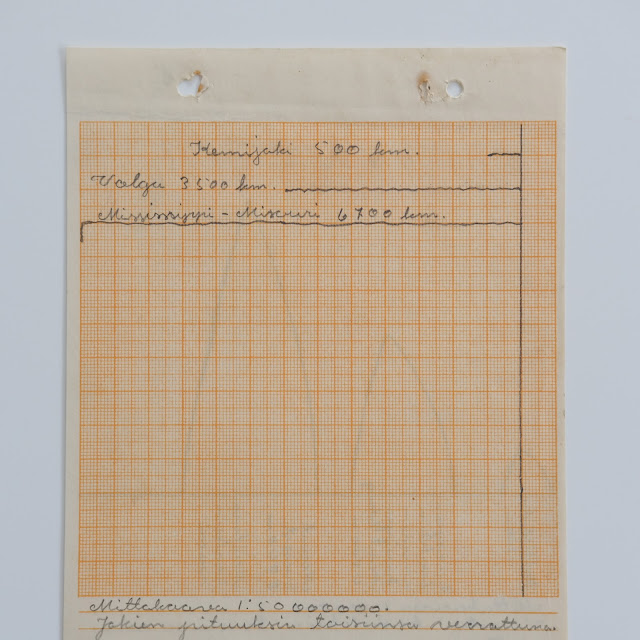 Kemijoki 500 km.
Volga 3500 km.
Mississippi - Misouri 6700 km.
Mittakaava 1:50000000.
Jokien pituuksia toisiinsa verrattuna.